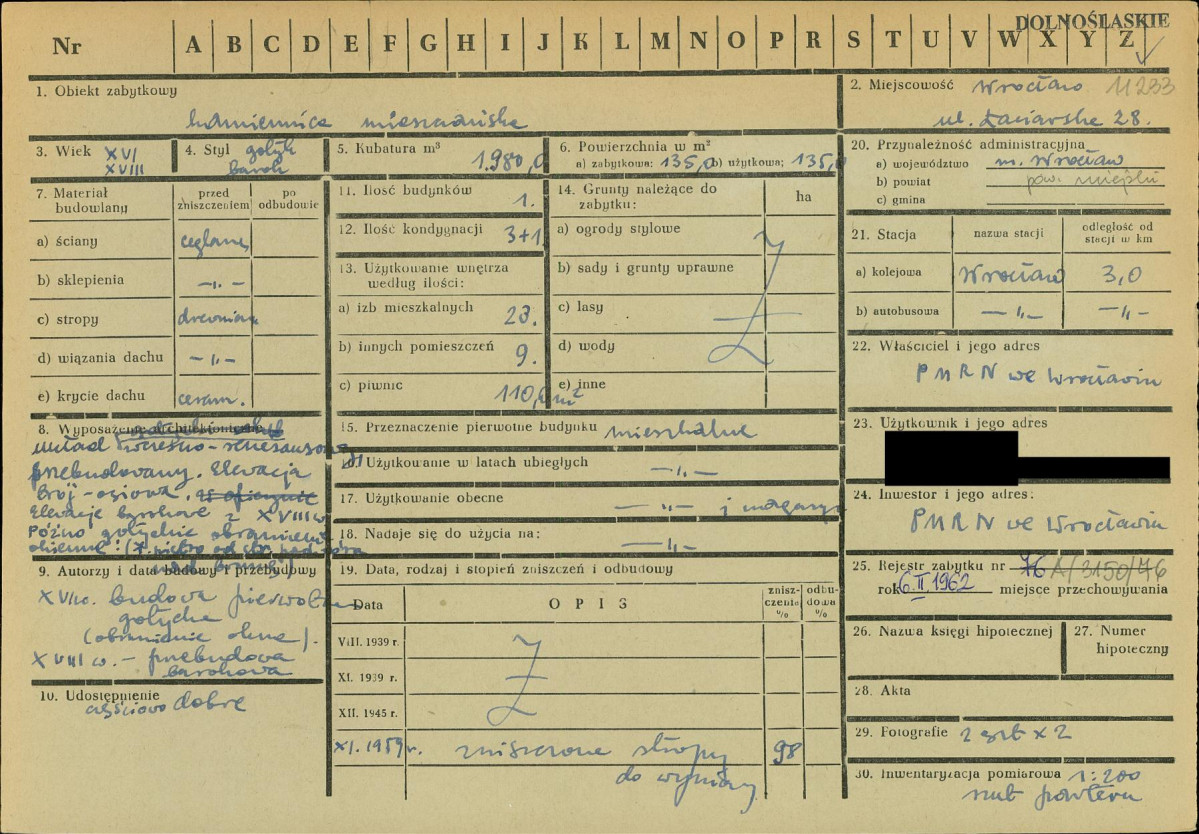 DOLNOŚLĄSKIE
Nr A B C D E F G H I J K L M N O P R S T U V W X Y Z
1. Obiekt zabytkowy
kamiennica mieszczańska
2. Miejscowość Wrocław 11233
ul. Łaciarska 28.
3. Wiek XVI
XVIII
4. Styl gotyk
barok
5. Kubatura m³
1.980,0
6. Powierzchnia w m²
a) zabytkowa: 135,0 b) użytkowa: 135,0
20. Przynależność administracyjna
a) województwo m. Wrocław
b) powiat pow. miejski
c) gmina
7. Materiał budowlany
przed zniszczeniem
po odbudowie
a) ściany ceglane
b) sklepienia —„—
c) stropy drewniane
d) wiązania dachu —„—
e) krycie dachu ceram.
11. Ilość budynków
1.
12. Ilość kondygnacji 3+1
13. Użytkowanie wnętrza
według ilości:
a) izb mieszkalnych
23.
b) innych pomieszczeń
9.
c) piwnic
110,0 m²
14. Grunty należące do
zabytku:
ha
a) ogrody stylowe
b) sady i grunty uprawne
c) lasy
d) wody
e) inne
21. Stacja
nazwa stacji
odległość od
stacji w km
a) kolejowa Wrocław 3,0
b) autobusowa —„— —„—
22. Właściciel i jego adres
PMRN we Wrocławiu
8. Wyposażenie architektoniczne
układ wczesno-renesansowy
przebudowany. Elewacja
trój-osiowa.
Elewacje barokowe z XVIII w
Późno gotyckie obramienie
okienne: (I. piętro od str. podwórza
nad bramą)
15. Przeznaczenie pierwotne budynku mieszkalne
16. Użytkowanie w latach ubiegłych
—„—
17. Użytkowanie obecne
—„— i magazyn
18. Nadaje się do użycia na:
—„—
23. Użytkownik i jego adres
24. Inwestor i jego adres:
PMRN we Wrocławiu
9. Autorzy i data budowy i przebudowy
XVI w. budowa pierwotna
gotycka
(obramienie okna).
XVIII w. – przebudowa
barokowa
19. Data, rodzaj i stopień zniszczeń i odbudowy
Data
OPIS
zniszczenia %
odbudowa %
VIII. 1939 r.
XI. 1939 r.
XII. 1945 r.
XI. 1959 r. zniszczone stropy 98
do wymiany
25. Rejestr zabytku nr 76 A/3150/76
rok 6 II 1962 miejsce przechowywania
26. Nazwa księgi hipotecznej
27. Numer
hipoteczny
10. Udostępnienie
częściowo dobre
28. Akta
29. Fotografie 2 szt x 2
30. Inwentaryzacja pomiarowa 1:200
rzut parteru